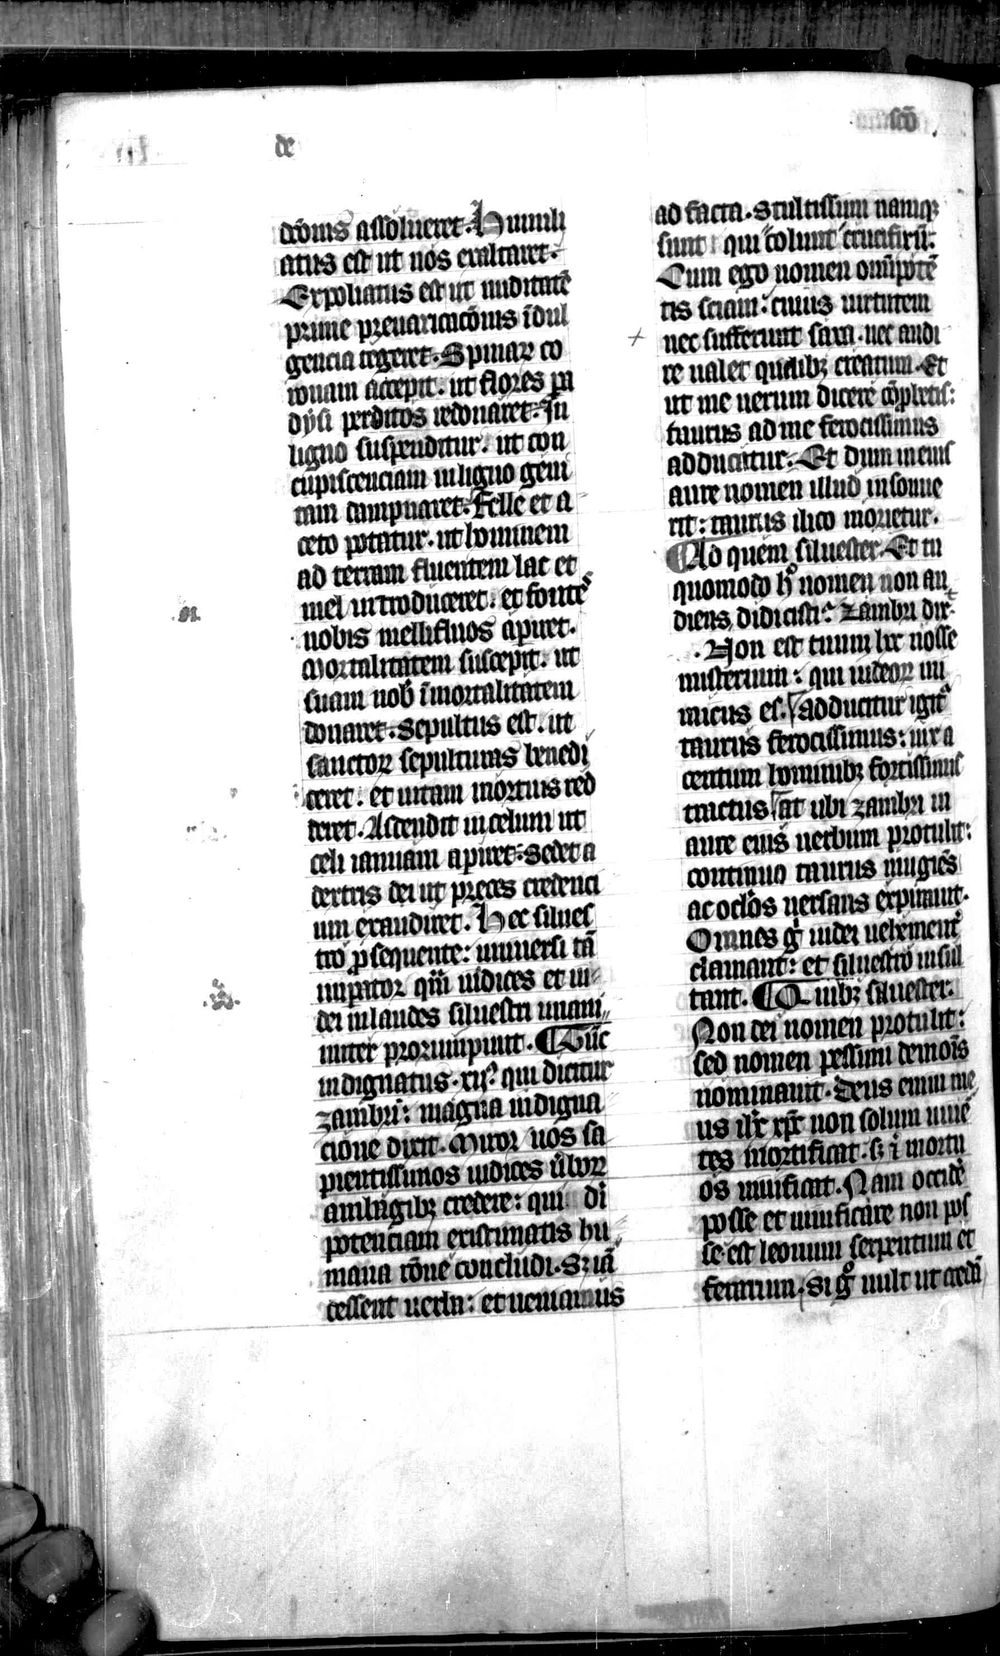 de
sc̄o
dc̄onis assolueret. Humili
atus est ut nos exaltaret.
Expoliatus est ut nuditatē
prime preuaricac̄onis īdul
gencia tegeret. Spinaꝝ co
ronam accepit. ut flores pa
dysi perditos redonaret. In
ligno suspenditur. ut con
cupiscenciam in ligno geni
tam dampnaret. Felle et a
ceto potatur. ut hominem
ad terram fluentem lac et
mel introduceret. et fontes
nobis mellifluos apiret.
Mortalitatem suscepit. ut
suam nob̄ īmortalitatem
donaret. Sepultus est. ut
sanctoꝝ sepulturas benedi
ceret. et uitam mortuis red
deret. Ascendit in celum ut
celi ianuam apiret. Sedet a
dextris dei ut preces credenci
um exaudiret. Hec silues
tro ꝓsequente: uniuersi tā
imꝑator qm̄ iudices et iu
dei in laudes siluestri unani
miter prorumpunt. ¶ Tūc
indignatus .xijꝰ. qui dicitur
zambri: magna indigna
cione dixit. Miror uos sa
pientissimos iudices ūboꝝ
ambagibꝫ credere: qui di
potenciam existimatis hu
mana rōne concludi. Sꝫ iā
cessent uerba: et ueniamus
ad facta. Stultissimi namqꝫ
sunt qui colunt crucifixū.
Cum ego nomen om̄ipotē
tis sciam: cuius uirtutem
nec sufferunt saxa. nec audi
re ualet quālibꝫ creatum. Et
ut me uerum dicere cōpletis:
taurus ad me ferocissimus
adducatur. Et dum in eius
aure nomen illud insonue
rit: taurus ilico morietur.
¶ Ad quem siluester. Et tu
quomodo hͦ nomen non au
diens didicisti? Zambri dix̄.
Non est tuum hͨ nosse
misterium: qui iudeoꝝ ini
micus es. adducitur igit᷑
taurus ferocissimus: uix a
centum hominibꝫ fortissimis
tractus at ubi zambri in
aure eius uerbum protulit:
continuo taurus mugiēs
ac oc̄los uersans expirauit.
Omnes gͥ iudei uehement᷑
clamant: et siluestro insul
tant. ¶ Quibꝫ siluester.
Non dei nomen protulit:
sed nomen pessimi demōis
nominauit. Deus enim me
us ih̄c xp̄c non solum uiuē
tes mortificat. sꝫ ī mortu
os uiuificat. Nam occide᷑
posse et uiuificare non pos
se est leonum serpentum et
ferarum. Si gͦ uult ut credā